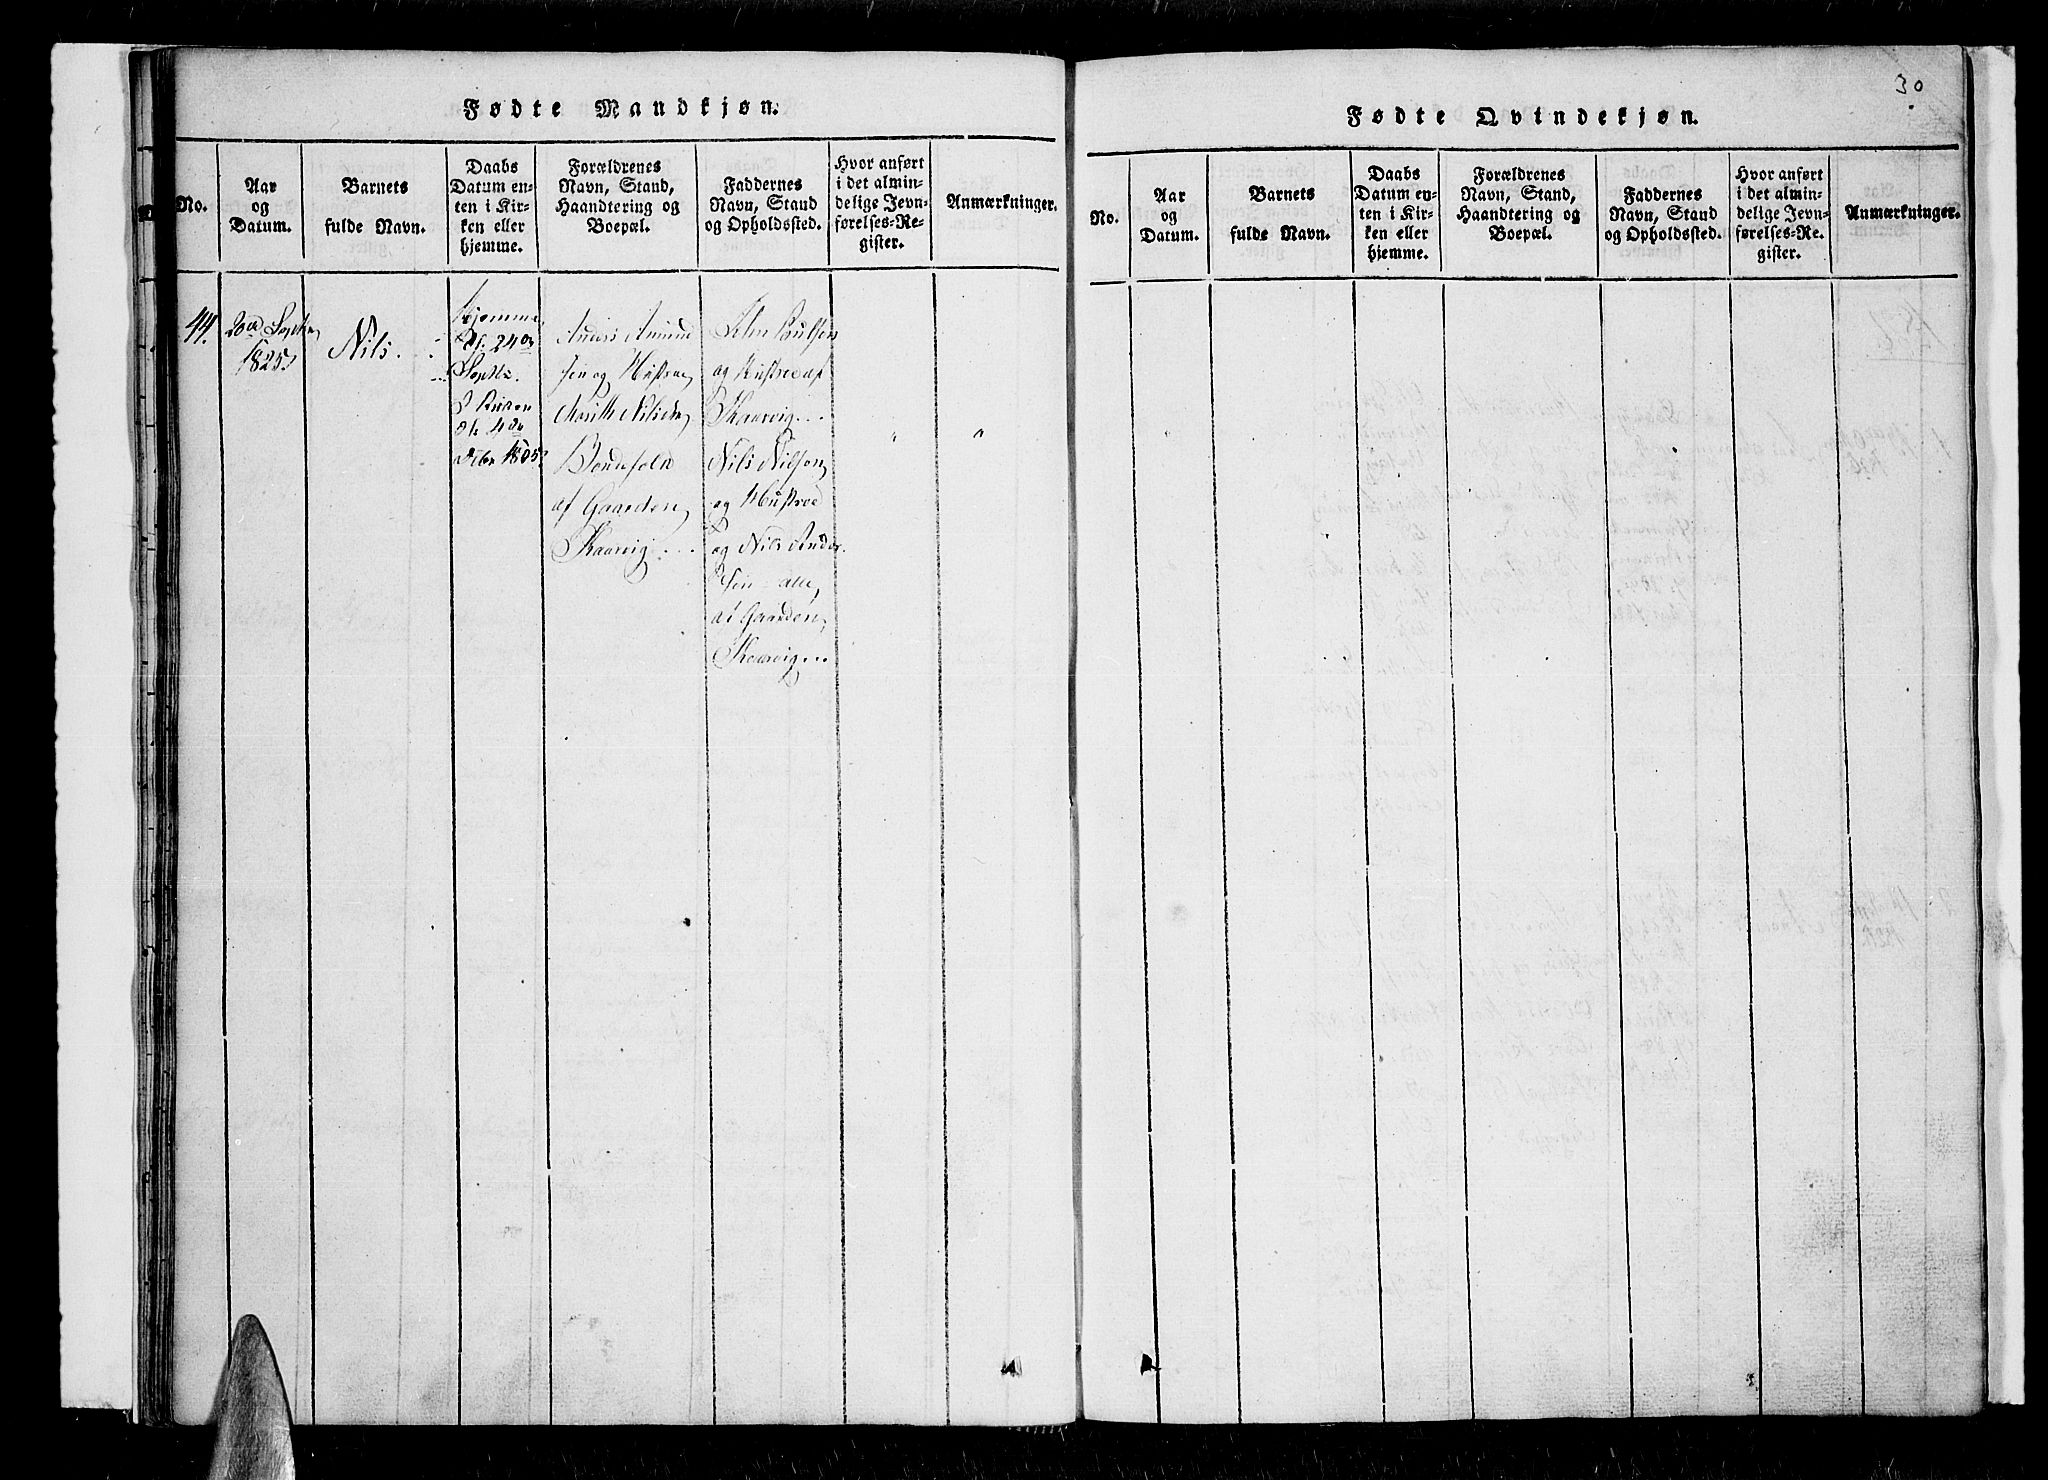 30
Fødte Mandkjøn.
No.
Aar
og
Datum.
Barnets
fulde Navn.
Daabs
Datum en-
ten i Kir-
ken eller
hjemme.
Forældrenes
Navn, Stand,
Haandtering og
Boepæl.
Faddernes
Navn, Stand
og Opholdssted.
Hvor anført
i det almin-
delige Jevn-
førelses-Re-
gister.
Anmærkninger.
44.
20de Septbr
1825
Nils.
Hjemme
24de
Septbr.
Kirken
Anders Amund
sen og Hustroe
Marith Nilsdtr
Bondefolk
af Gaarden
Skaarvig
Paulsen
og Hustroe af
Skaarvig
Nils Nilsen
og Hustroe
og Nils Ander
sen alle
af Gaarden
Skaarvig
Fødte Qvindekjøn.
No.
Aar
og
Datum.
Barnets
fulde Navn.
Daabs
Datum en-
ten i Kir-
ken eller
hjemme.
Forældrenes
Navn, Stand,
Haandtering og
Boepæl.
Faddernes
Navn, Stand
og Opholdssted.
Hvor anført
i det almin-
delige Jevn-
førelses-Re-
gister.
Anmærkninger.